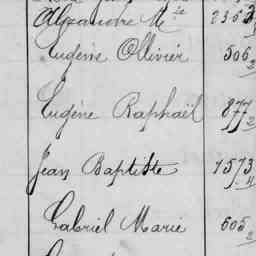 Alexandre M^ie 2353
Eugène Ollivier 506
2
Eugène Raphaël 877
2
Jean Baptiste 1573
4
Gabriel Marie 605
2